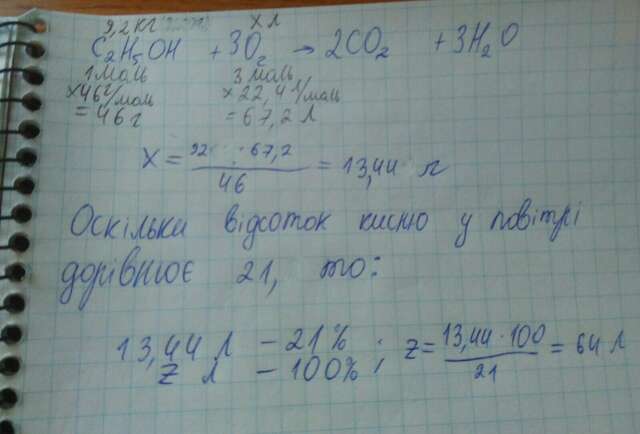 9,2 кг х л
C₂H₅OH + 3O₂ → 2CO₂ + 3H₂O
1 моль 3 моль
×46 г/моль ×22,4 л/моль
= 46 г = 67,2 л
X = 92 · 67,2 / 46 = 13,44 л
Оскільки відсоток кисню у повітрі
дорівнює 21, то:
13,44 л – 21% ; z = 13,44 · 100 / 21 = 64 л
z л – 100%